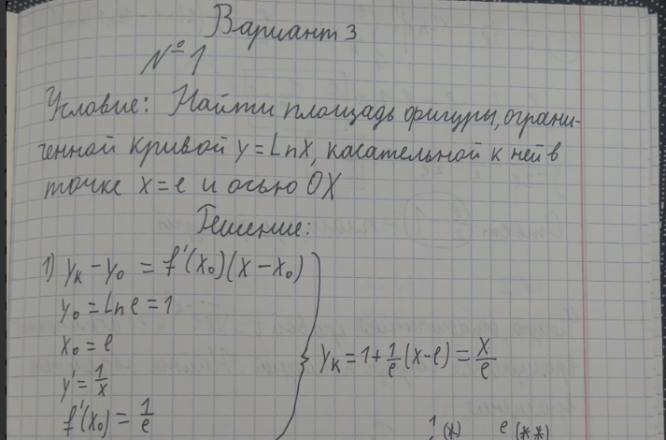 Вариант 3
№ 1
Условие: Найти площадь фигуры, ограни-
ченной кривой y = Lnx, касательной к ней в
точке x = e и осью OX
Решение:
1) yк - y₀ = f'(x₀)(x - x₀)
y₀ = Ln e = 1
x₀ = e
y' = 1/x
f'(x₀) = 1/e
yк = 1 + 1/e (x - e) = x/e
1 (*) e (**)